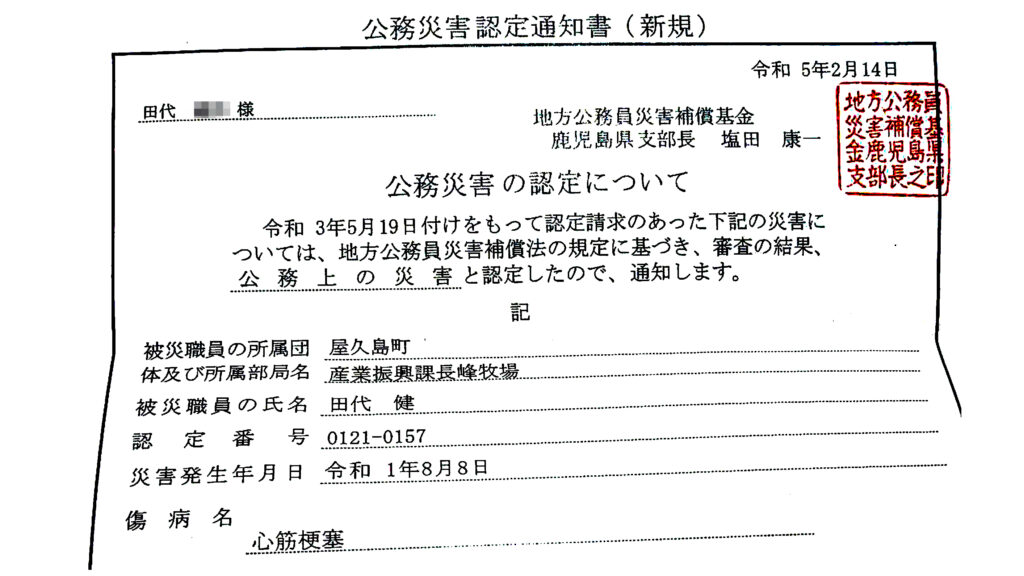 公務災害認定通知書（新規）
令和 5年2月14日
田代 様
地方公務員災害補償基金
鹿児島県支部長 塩田 康一
地方公務員
災害補償基
金鹿児島県
支部長之印
公務災害の認定について
令和 3年5月19日付けをもって認定請求のあった下記の災害に
ついては、地方公務員災害補償法の規定に基づき、審査の結果、
公務上の災害と認定したので、通知します。
記
被災職員の所属団 屋久島町
体及び所属部局名 産業振興課長峰牧場
被災職員の氏名 田代 健
認定番号 0121-0157
災害発生年月日 令和 1年8月8日
傷病名
心筋梗塞